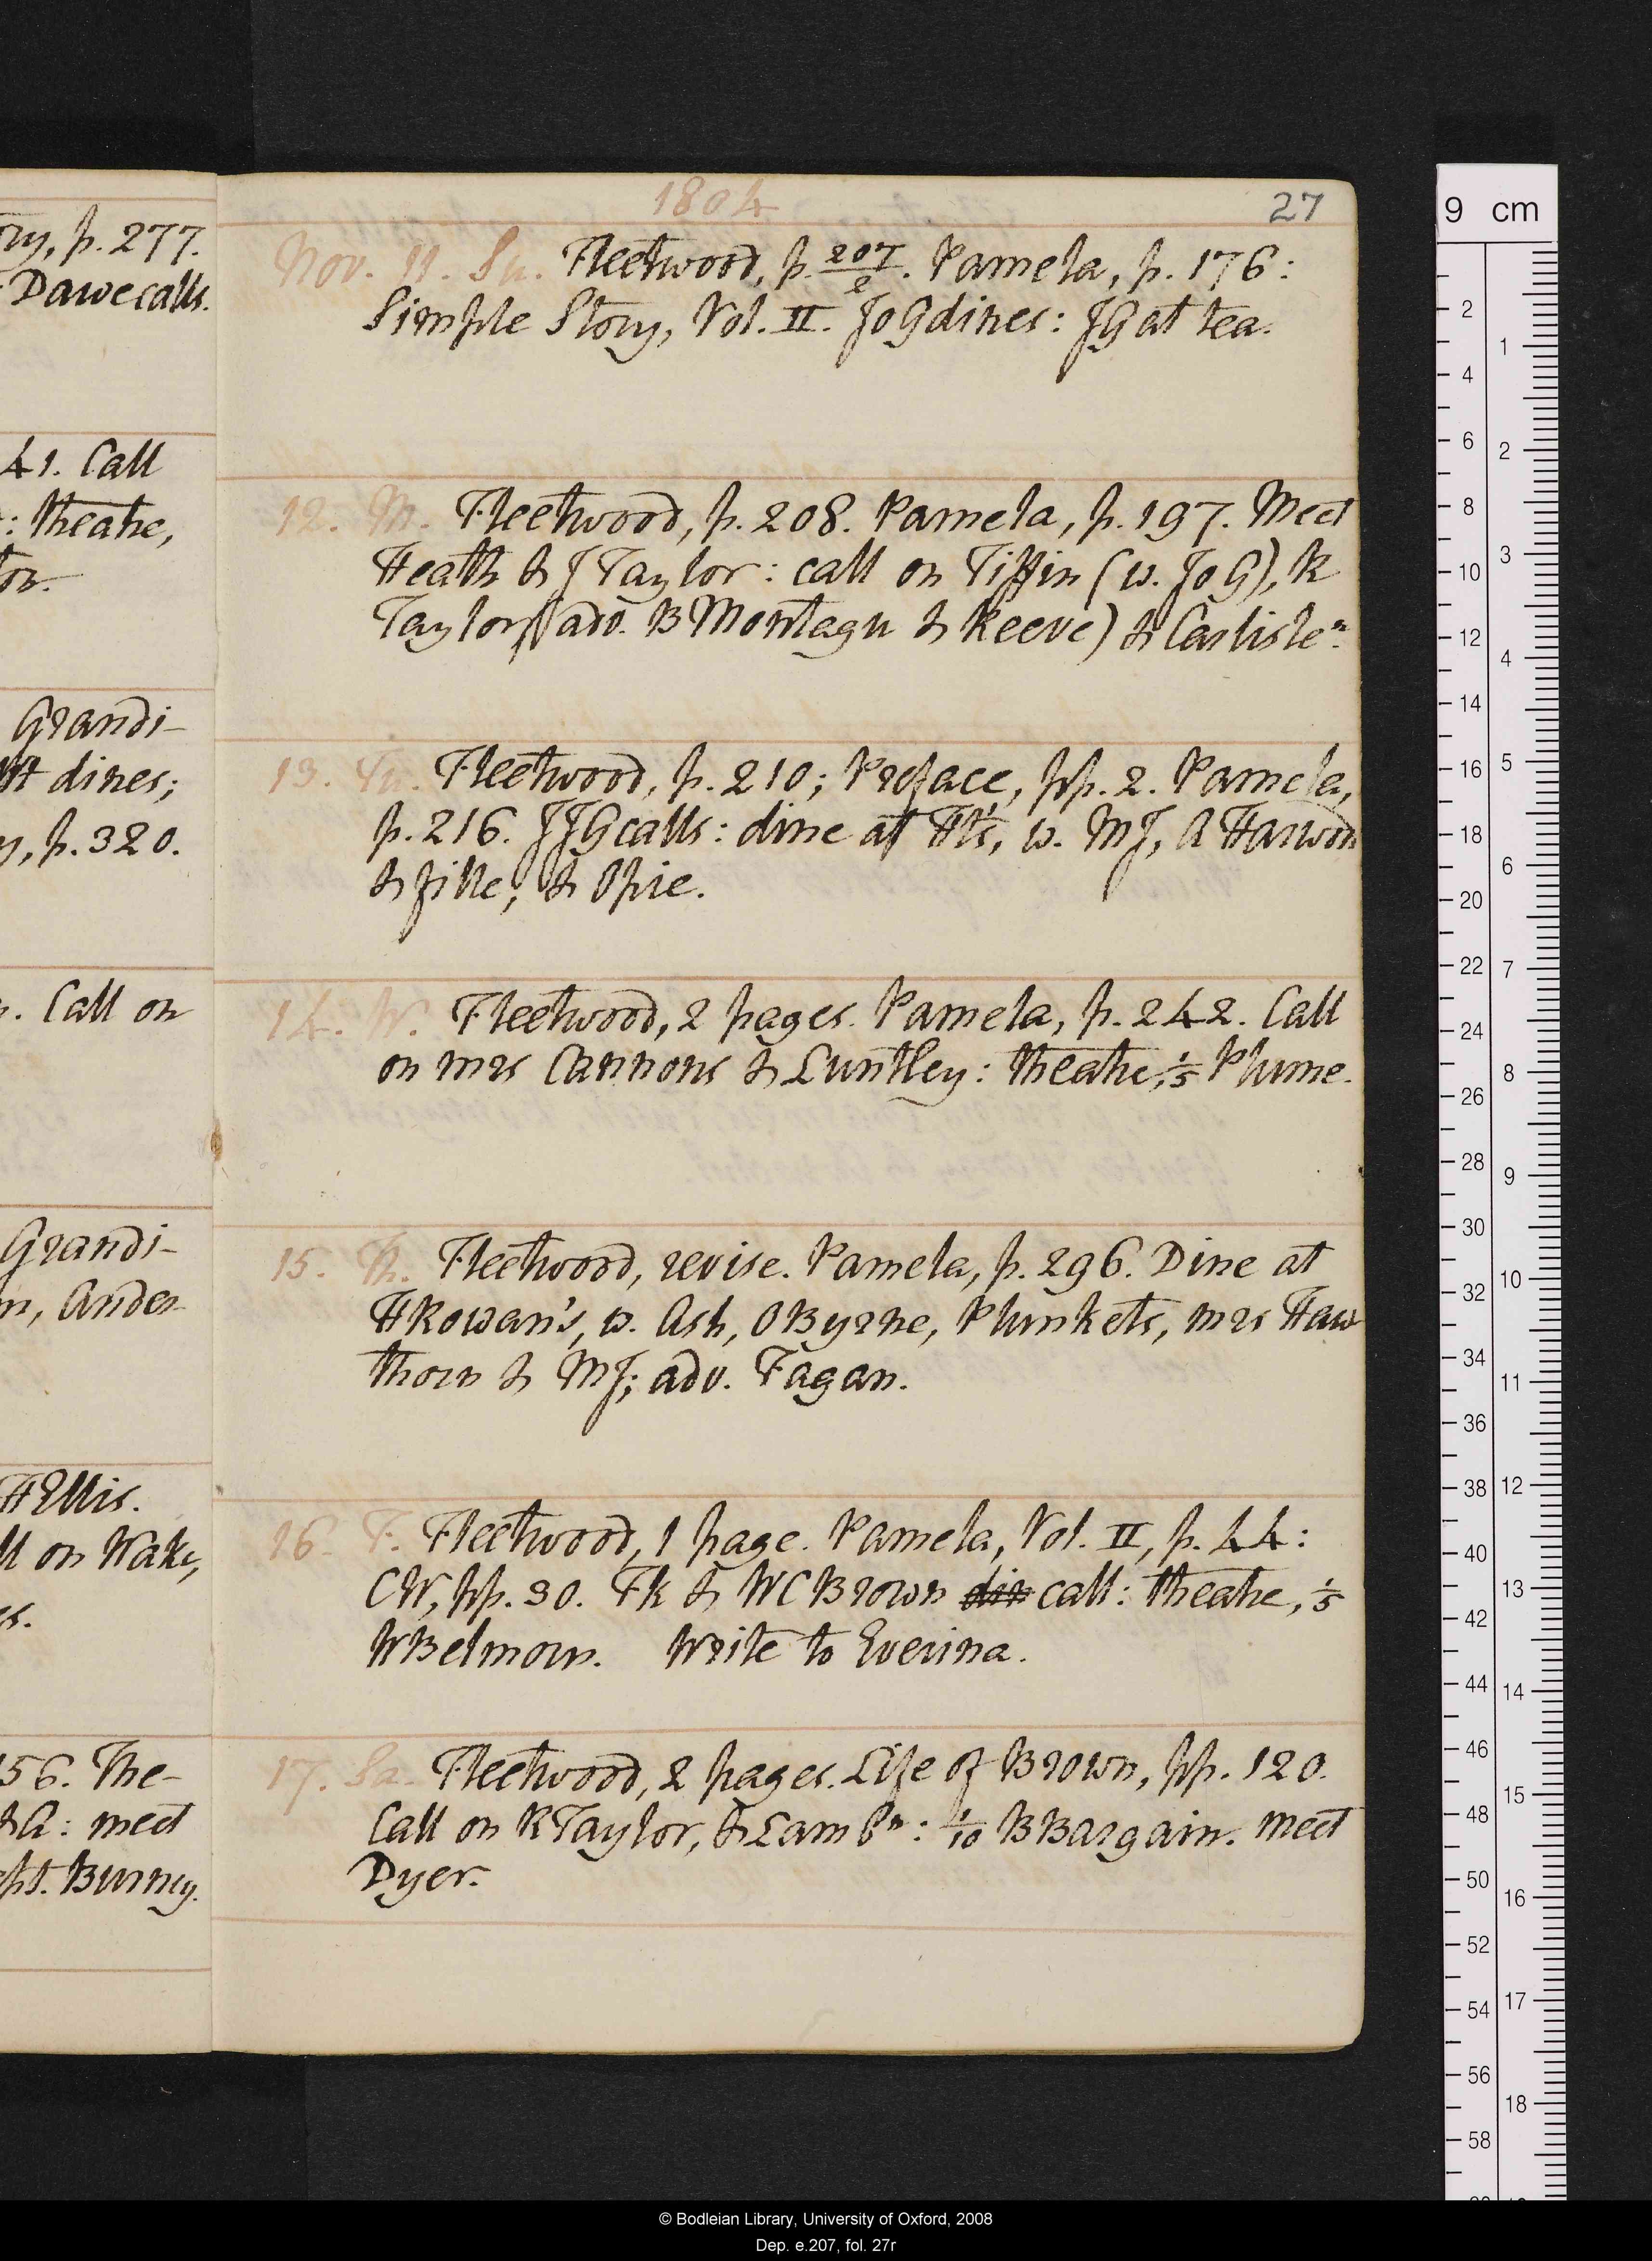 ry, p. 277.
Dawe calls.
41. Call
: theatre,
ton.
Grandi-
dines;
y, p. 320.
. Call on
Grandi-
n, Ander-
HEllis.
ll on Wake,
es.
156. The-
& A: meet
apt. Burney.
1804
27
Nov. 11. Su. Fleetwood, p. 207/2. Pamela, p. 176:
Simple Story, Vol. II. JoGdines: JG at tea.
12. M. Fleetwood, p. 208. Pamela, p. 197. Meet
Heath & J Taylor: call on Tiffin (w. JoG), R
Taylor (adv. B Montagu & Reeve) & Carlisle n.
13. Tu. Fleetwood, p. 210; Preface, pp. 2. Pamela,
p. 216. JJG calls: dine at Ht's, w. MJ, A Harwood
& fille, & Opie.
14. W. Fleetwood, 2 pages. Pamela, p. 242. Call
on mrs Cannons & Luntley: theatre, 1/5 Plume.
15. Th. Fleetwood, revise. Pamela, p. 296. Dine at
HRowan's, w. Ash, OByrne, Plunkets, mrs Haw
thorn & MJ; adv. Fagan.
16. F. Fleetwood, 1 page. Pamela, Vol. II, p. 44:
CW, pp. 30. Fk & WCBrown din call: theatre, 1/5
WBelmour. Write to Everina.
17. Sa. Fleetwood, 2 pages. Life of Brown, pp. 120.
Call on RTaylor, & Lamb n: 1/10 BBargain. meet
Dyer.
9 cm
© Bodleian Library, University of Oxford, 2008
Dep. e.207, fol. 27r